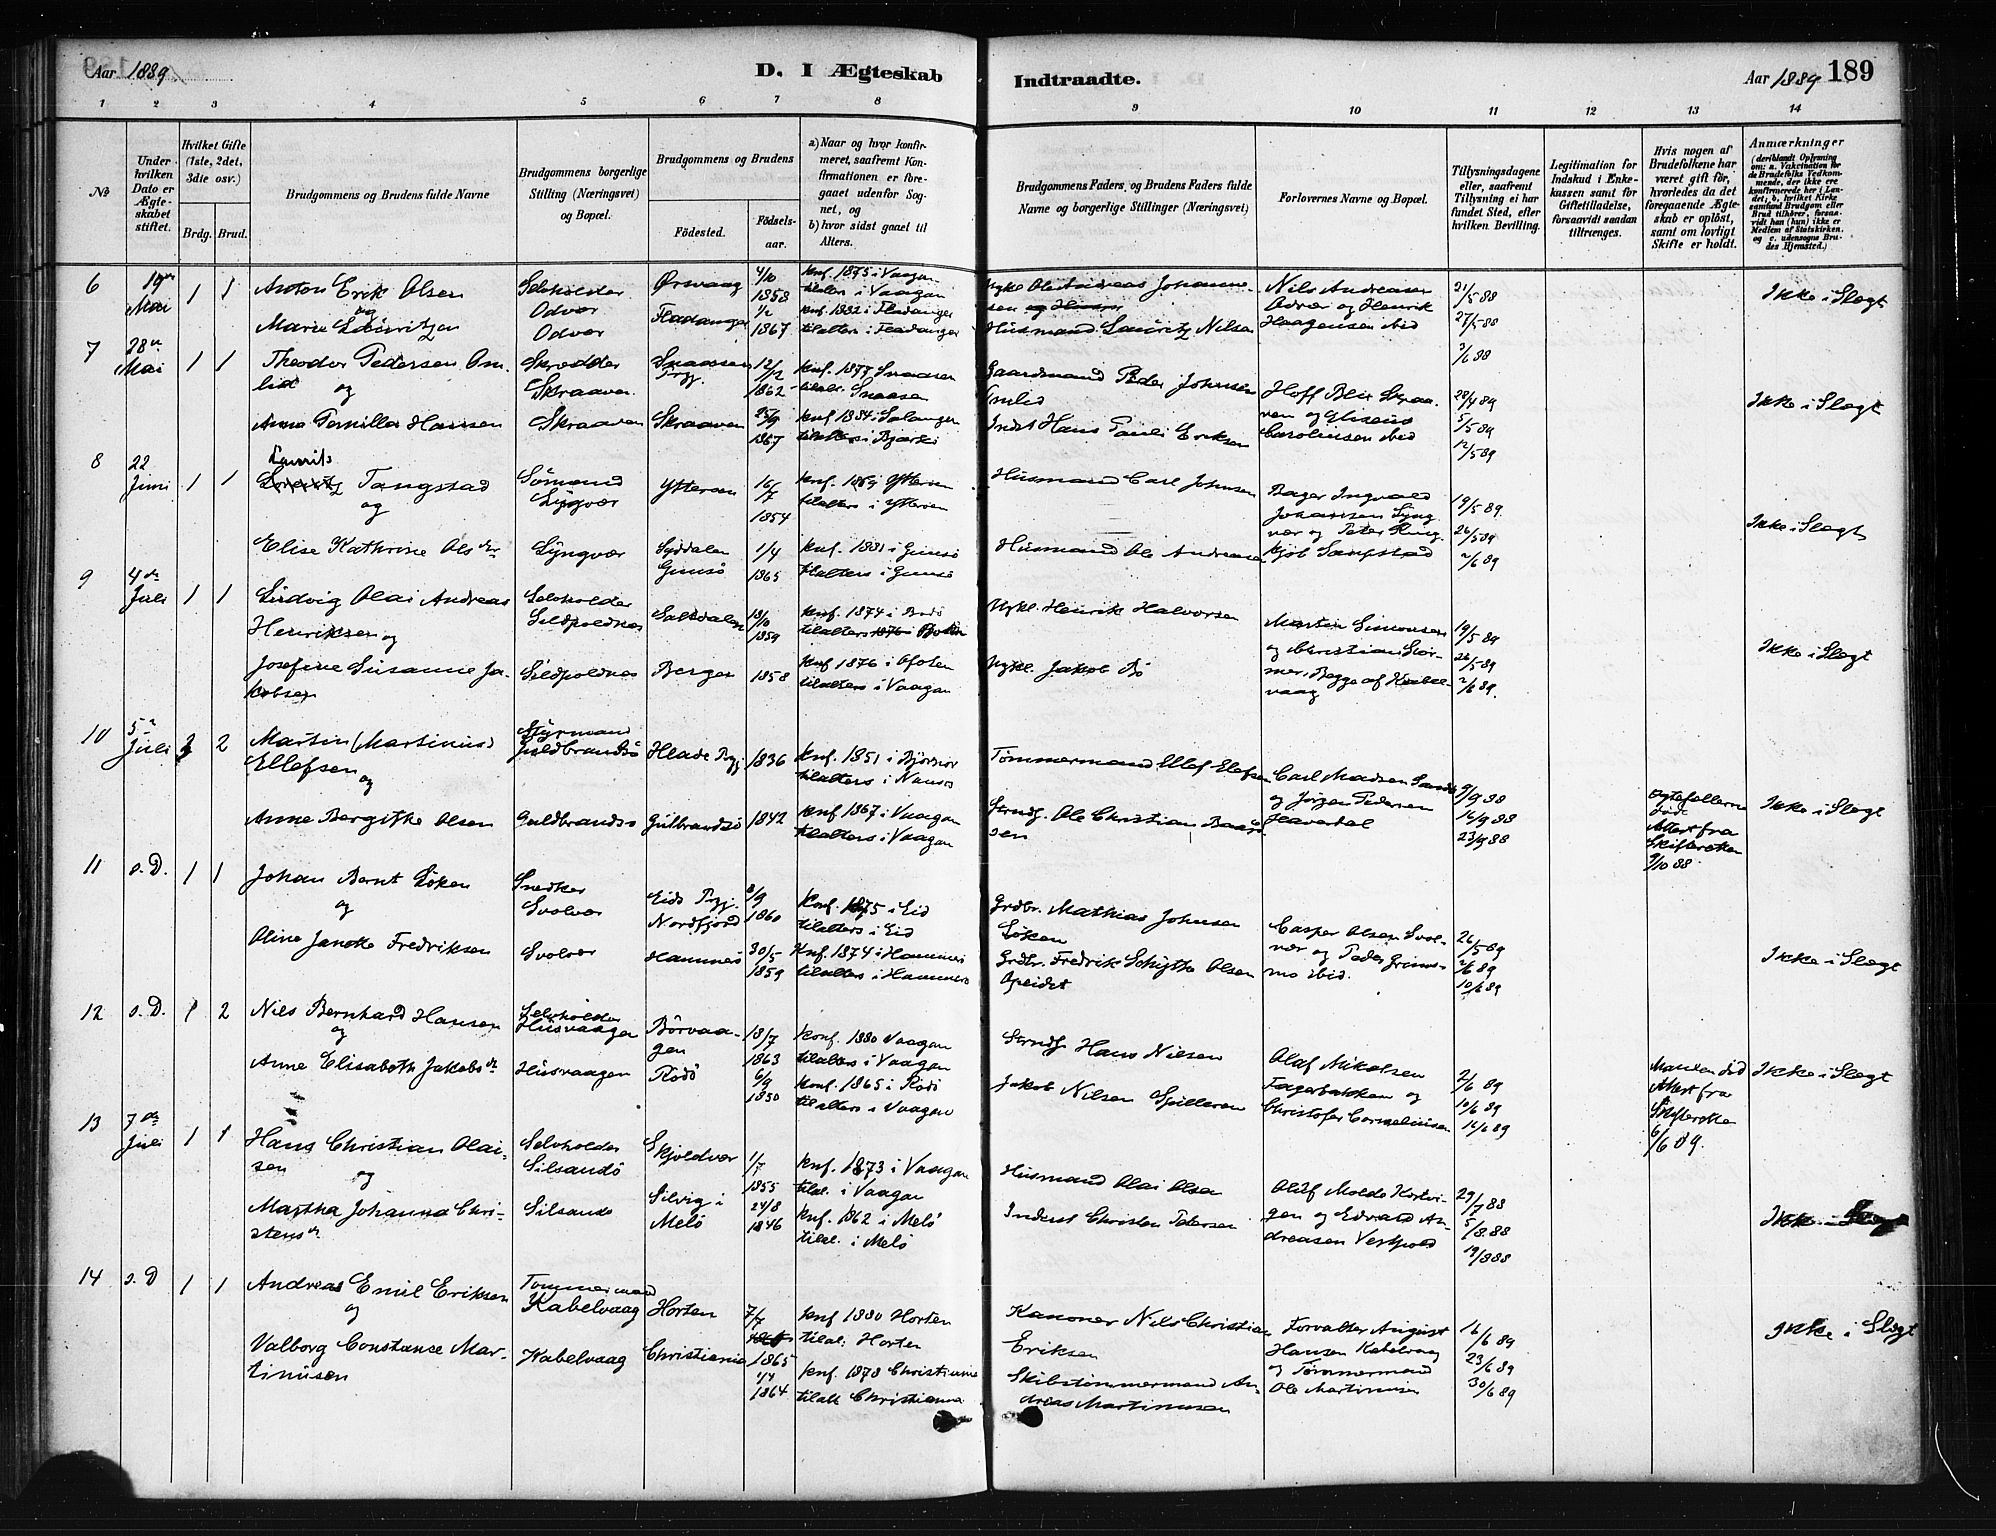 Aar 1889.
D. I Ægteskab
Indtraadte.
Aar 1889
189
1 2 3 4 5 6 7 8 9 10 11 12 13 14
No
Under hvilken Dato er Ægteskabet stiftet.
Hvilket Gifte (1ste, 2det, 3die osv.)
Brdg. Brud.
Brudgommens og Brudens fulde Navne
Brudgommens borgerlige Stilling (Næringsvei) og Bopæl.
Brudgommens og Brudens
Födested.
Födselsaar.
a) Naar og hvor konfirmeret, saafremt Konfirmationen er foregaaet udenfor Sognet, og
b) hvor sidst gaaet til Alters.
Brudgommens Faders, og Brudens Faders fulde Navne og borgerlige Stillinger (Næringsvei)
Forlovernes Navne og Bopæl.
Tillysningsdagene eller, saafremt Tillysning ei har fundet Sted, efter hvilken Bevilling.
Legitimation for Indskud i Enkekassen samt for Giftetilladelse, forsaavidt saadan tiltrænges.
Hvis nogen af Brudefolkene har været gift för, hvorledes da det foregaaende Ægteskab er oplöst, samt om lovligt Skifte er holdt.
Anmærkninger
(deriblandt Oplysning om: a. Vakcination for de Brudefolks Vedkommende, der ikke ere konfirmerede her i Landet; b. hvilket Kirkesamfund Brudgom eller Brud tilhörer, forsaavidt han (hun) ikke er Medlem af Statskirken, og c. udensogns Brudes Hjemsted.)
6 19de Mai 1 1
Anton Erik Olsen
og
Marie Lauritzen
Selvholder
Odvær
Odvær
Ørsvaag
Fladanger
4/10 1858
1/2 1867
knf. 1875 i Vaagan
tilalters i Vaagan
knf. 1882 i Fladanger
tilalters i Fladanger
Nykl. Ole Andreas Johannesen
Husmand Lauritz Nilsen
Nils Andreasen
Odvær og Henrik
Haagensen ibid
21/5 88
27/5 88
3/6 88
Ikke i Slægt
7 28de Mai 1 1
Theodor Pedersen Omlid
og
Anna Pernille Hansen
Skrædder
Skraaven
Skraaven
Snaasen Prgj.
Skraaven
12/12 1862
25/9 1867
knf. 1877 Snaasen
tilalt. Snaasen
knf 1884 i Salangen
tilalters i Bjarkö
Gaardmand Peder Johnsen
Omlid
Indst Hans Pauli Eriksen
Hoff Blix Skraaven og Eliseus
Carolinsen ibid
28/4 89
5/5 89
12/5 89
Ikke i Slægt
8 22 Juni 1 1
Laurits
Tangstad
og
Elise Kathrine Olsdtr
Sömand
Lyngvær
Lyngvær
Ytteren
Syddalen
Gimsö
16/7 1854
1/4 1865
knf. 1869 Ytteren
tilalters i Ytteren
knf. 1881 i Gimsö
tilalters i Gimsö
Husmand Carl Johnsen
Husmand Ole Andreasen
Bager Ingvald
Johansen Lyngvær og Peter
19/5 89.
26/5 89
2/6 89
Ikke i Slægt
9 4de Juli 1 1
Ludvig Olai Andreas
Henriksen og
Josefine Susanne Jakobsen
Selvholder
Sildpoldnes
Sildpoldnes
Saltdalen
Bergen
13/10 1859
1858
knf. 1874 i Bodö
tilalters
knf 1876 i Ofoten
tilalters i Vaagan
Nykl. Henrik Halvorsen
Nykl. Jakob Bö
Martin Simonsen
og Christian Stormer, Begge af Kabelvaag
19/5 89
26/5 89
2/6 89.
Ikke i Slægt
10 5te Juli 2 2
Martin (Martinius)
Ellefsen og
Anne Bergithe Olsen
Styrmand
Guldbrandsö
Guldbrandsö
Hlade Prgj
Gulbrandsö
1836
1842
knf. 1851 i Björnör
tilalters i Namsos
knf 1867 i Vaagan
tilalters i Vaagan
Tømmermand Ellef Elefsen
Strndf. Ole Christian Baarsen
Carl Madsen Sande
og Jörgen Pedersen
Haverdal
9/9 88
16/9 88
23/9 88
Ægtefællerne
döde
Attest fra
Skifteretten
9/10 88
Ikke i Slægt
11 s.D. 1 1
Johan Bernt Löken
og
Oline Jancke Fredriksen
Snedker
Svolvær
Svolvær
Eids Prgj.
Nordfjord
Hamnes
8/9 1860
30/5 1859
Konf. 1875 i Eid
tilalters i Eid
Knf. 1874 i Hamnes
tilalters i Hamnerö
Grdbr. Mathias Johnsen
Löken
Grdbr. Fredrik Schytte Olsen
Opeidet
Casper Olsen Svolvær og Peder Grimsmo ibid.
26/5 89
2/6 89
10/6 89
Ikke i Slægt
12 s.D. 1 2
Nils Bernhard Hansen
og
Anne Elisabeth Jakobsdtr
Selvholder
Husvaagen
Husvaagen
Börvaagen
Rödö
18/7 1863
6/9 1850
konf. 1880 Vaagan
tilalters i Vaagan
konf. 1865 i Rödö
tilalters i Vaagan
Strndf. Hans Nilsen
Jakob Nilsen Spilleren
Olaf Mikalsen
Fagerbakken og
Christofer Cornelius­sen
2/6 89
10/6 89
16/6 89
Manden död
Attest fra
Skifteretten
6/6 89.
Ikke i Slægt
13 7de Juli 1 1
Hans Christian Olaisen
og
Martha Johanna Christensdr
Selvholder
Silsandö
Silsandö
Skjoldvær
Silvig i
Melö
1/7 1855
24/8 1846
knf. 1873 i Vaagan
tilal. i Vaagan
knf. 1862 i Melö
tilal. i Melö
Husmand Olai Olsen
Inderst Christen Petersen
Oluf Molde
og Edvard Andreasen Vestpold
29/7 88
5/8 88
12/8 88
Ikke i Slægt
14 s.D 1 1
Andreas Emil Eriksen
og
Valborg Constance Martinusen
Tömmermand
Kabelvaag
Kabelvaag
Horten
Christiania
7/7 1865
1864
knf 1880 Horten
tilal. Horten
knf. 1878 Christiania
tilalt Christiania
Kanoner Nils Christian
Eriksen
Skibstömmermand Andreas Martinusen
Forvalter August
Hansen Kabelvaag
og Tömmermand
Ole Martinusen
16/6 89
23/6 89
30/6 89
Ikke i Slægt